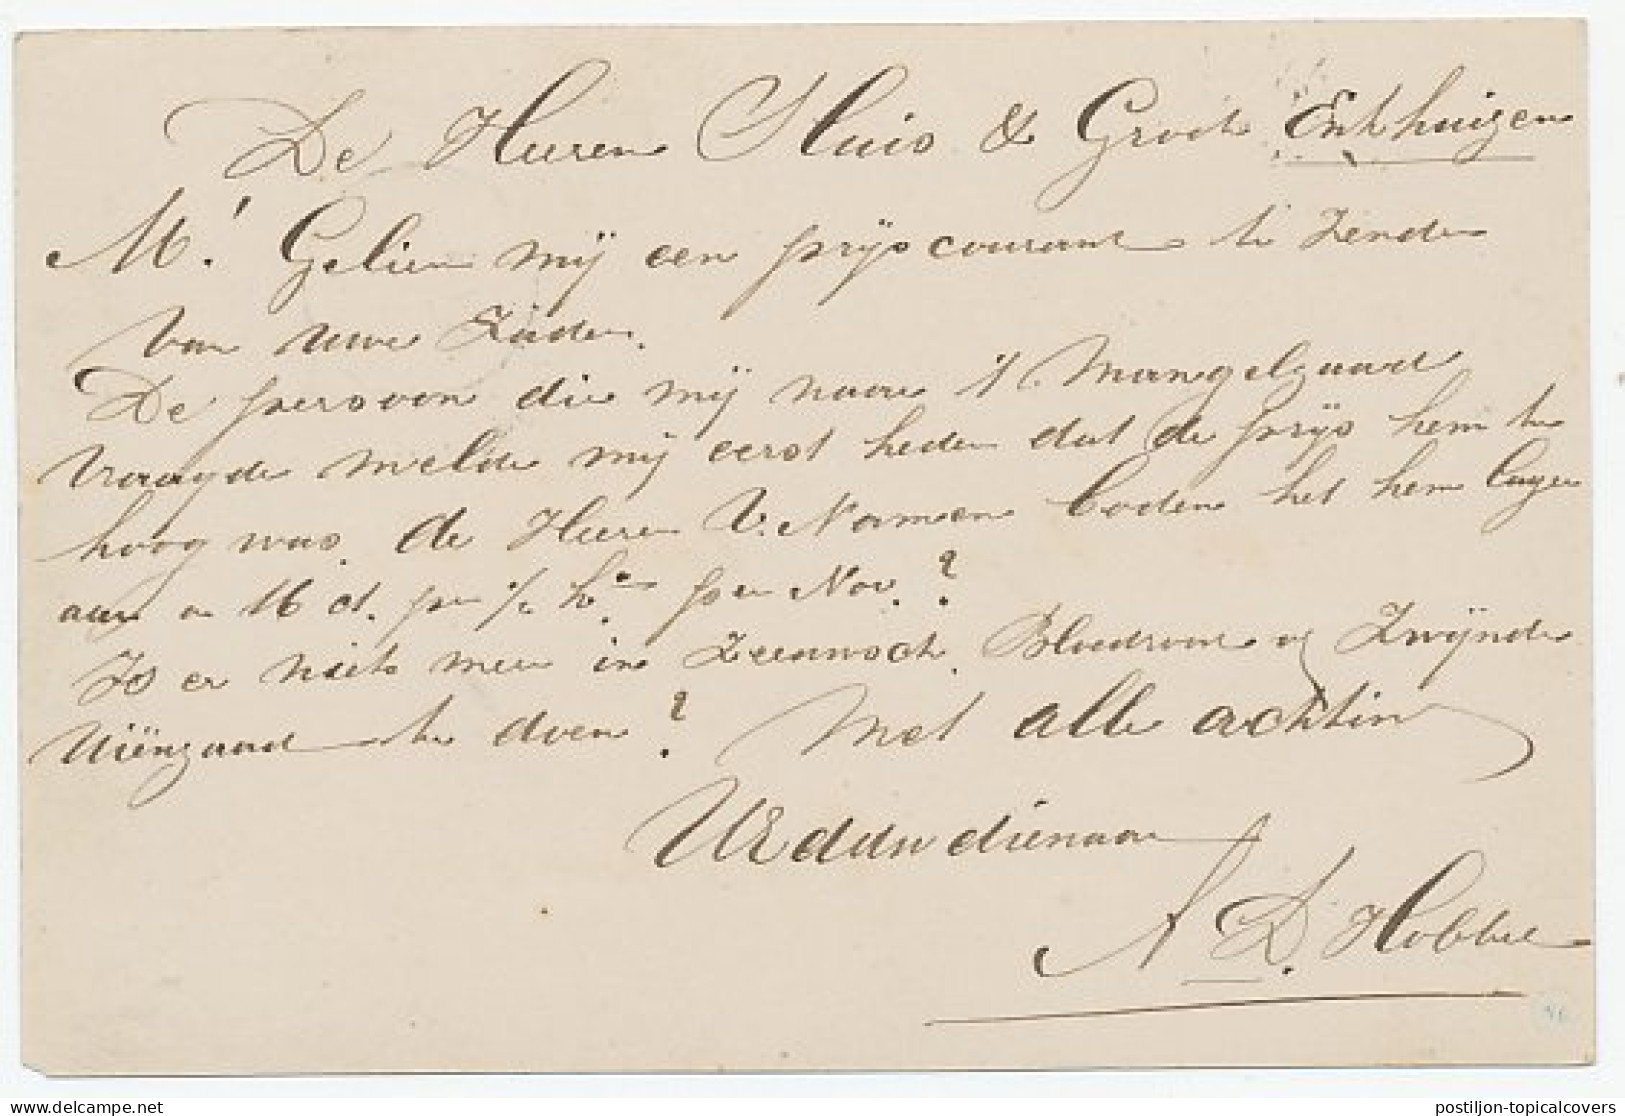 De Heeren Sluis & Groot Enkhuizen
M! Gelieve mij een prijscourant te Zenden
van uwe Zaden.
De persoon die mij naar 't Mangelzaad
vraagde melde mij eerst heden dat de prijs hem te
hoog was. de Heeren V. Namen boden het hem lager
aan a 16 ct. per per Nov.?
Is er niets meer in Bloedroode of Zwijnde
Uiënzaad te doen? Met alle achting
UEd dw dienaar
A D. Hobbel
postiljon-topicalcovers